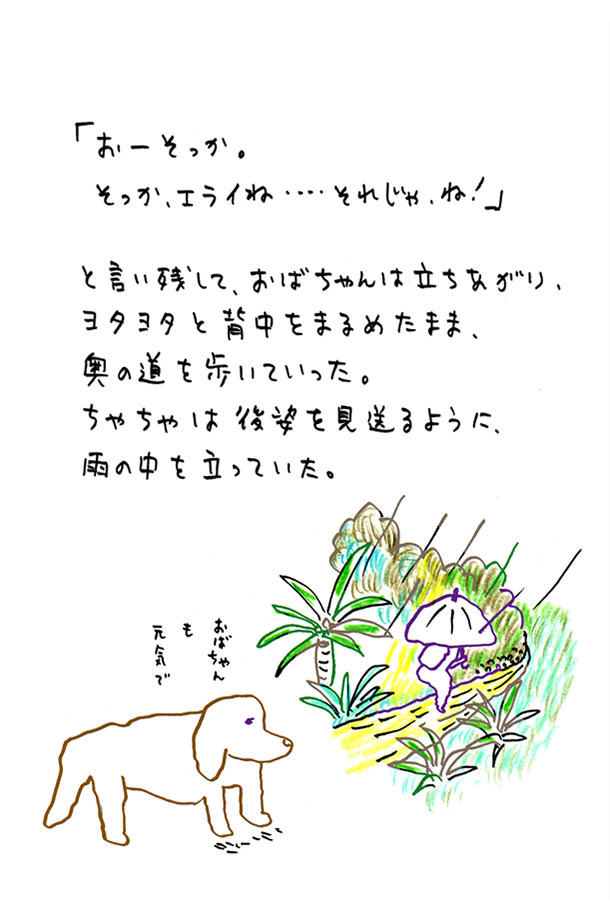 「おーそっか。
そっか、エライね‥‥それじゃ、ね!」
と言い残して、おばちゃんは立ちあがり、
ヨタヨタと背中をまるめたまま、
奥の道を歩いていった。
ちゃちゃは後姿を見送るように、
雨の中を立っていた。
おばちゃん
も
元気で